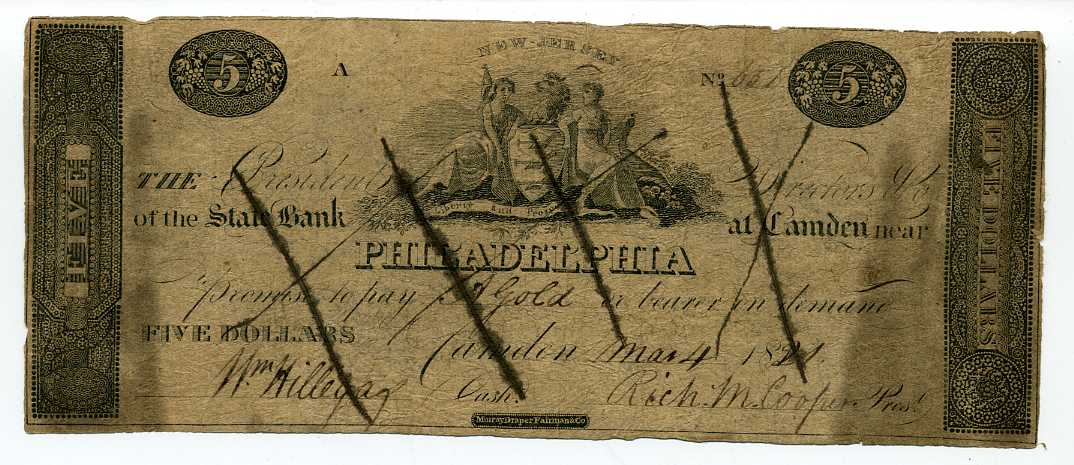 NEW-JERSEY
5 A No 5
THE President Directors &c
Liberty and
of the State Bank at Camden near
PHILADELPHIA
Promise to pay Gold or bearer on demand
FIVE DOLLARS Camden Mar 4 1821
Wm Hillegas Cash. Rich. M. Cooper Prest
Murray Draper Fairman & Co
FIVE
FIVE DOLLARS